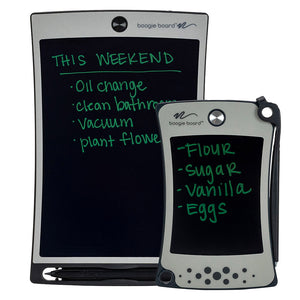 boogie board™
THIS WEEKEND
• Oil change
• clean bathroom
• Vacuum
• plant flowe
boogie board™
- FLOUR
- SUGAR
- Vanilla
- EGGS